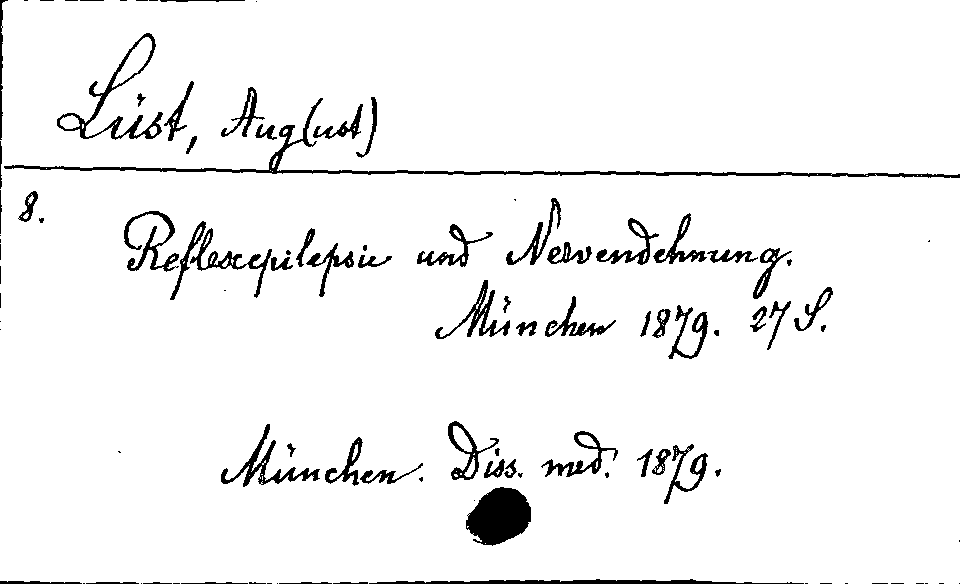 Lüst, Aug(ust)
8.
Reflexepilepsie und Nervendehnung.
München 1879. 27 S.
München. Diss. med. 1879.